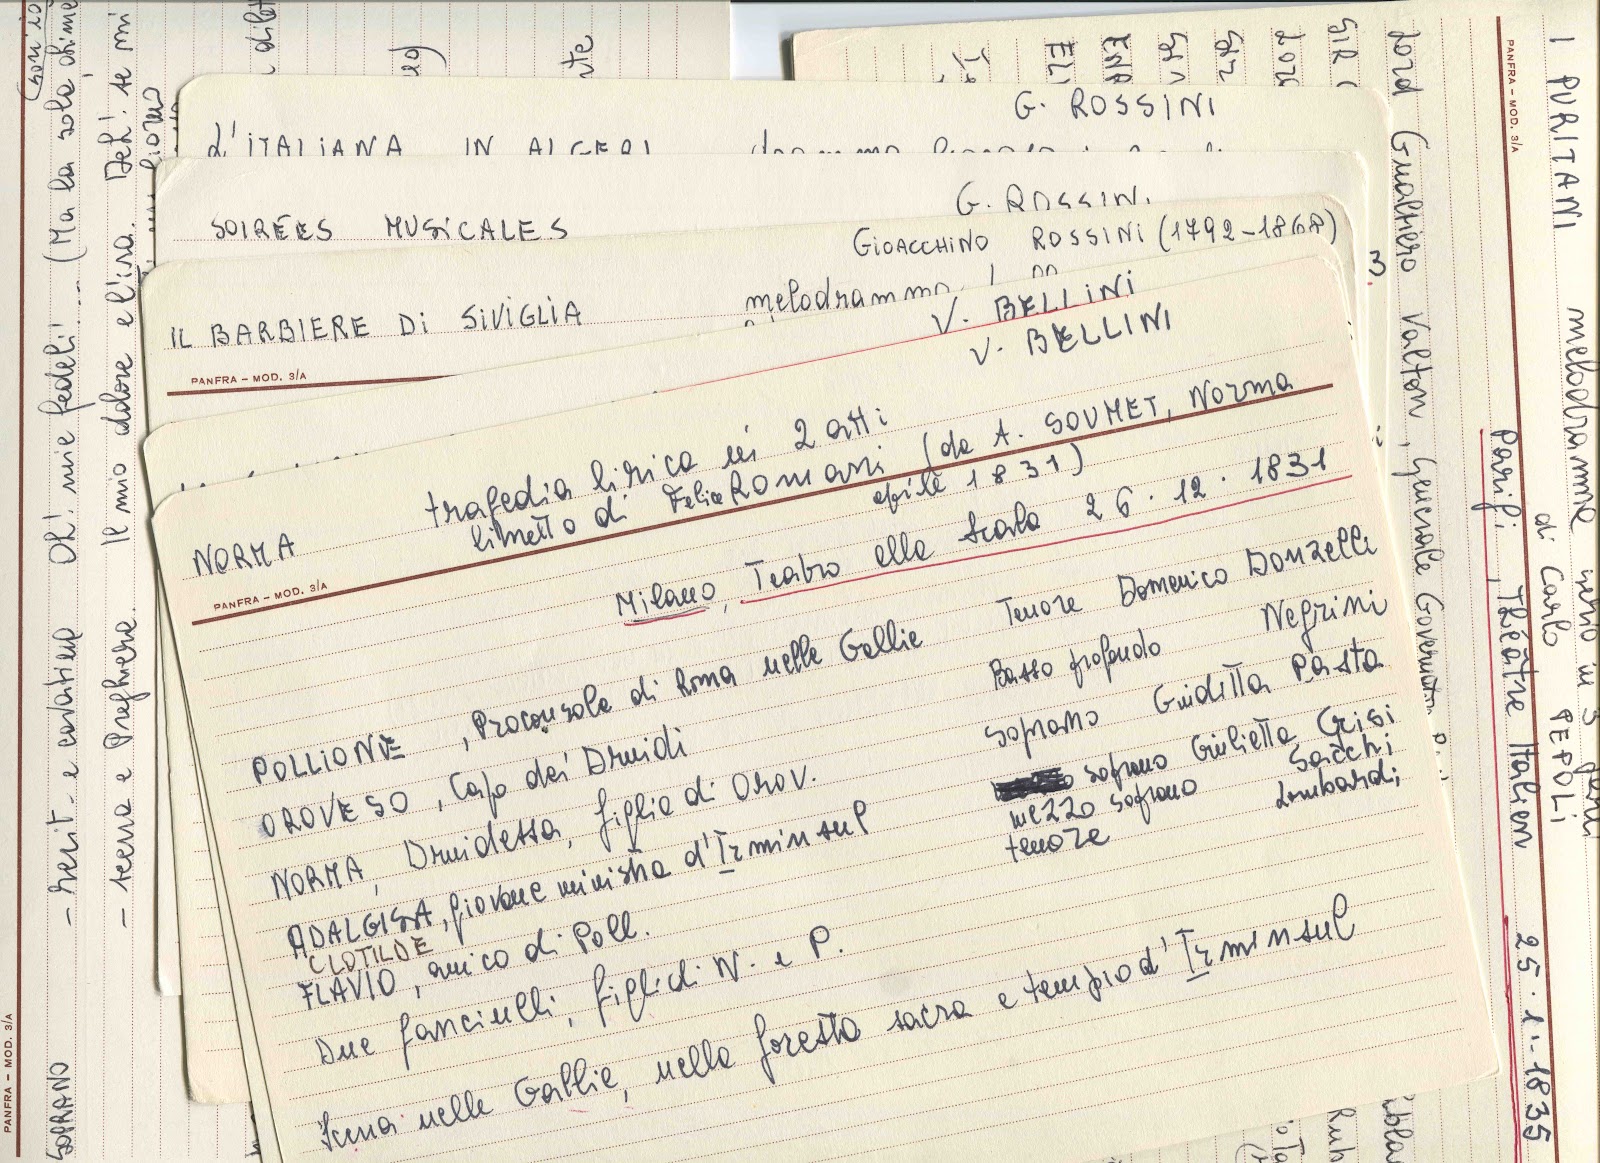 G. ROSSINI
L'ITALIANA IN ALGERI
G. ROSSINI
SOIRÉES MUSICALES
GIOACCHINO ROSSINI (1792-1868)
IL BARBIERE DI SIVIGLIA melodramma
PANFRA – MOD. 3/A
V. BELLINI
V. BELLINI
tragedia lirica in 2 atti
NORMA libretto di Felice Romani (da A. SOUMET, Norma
aprile 1831)
PANFRA – MOD. 3/A
Milano, Teatro alla Scala 26.12.1831
POLLIONE, Proconsole di Roma nelle Gallie Tenore Domenico Donzelli
OROVESO, Capo dei Druidi Basso profondo Negrini
NORMA, Druidessa, figlia di Orov. soprano Giuditta Pasta
ADALGISA, giovane ministra d'Irminsul soprano Giulietta Grisi
CLOTILDE mezzo soprano Sacchi
FLAVIO, amico di Poll. tenore Lombardi
Due fanciulli, figli di N. e P.
Scena nelle Gallie, nella foresta sacra e tempio d'Irminsul
I PURITANI melodramma serio in 3 parti
di Carlo PEPOLI
PANFRA – MOD. 3/A
Parigi, Théâtre Italien 25.1.1835
Lord Gualtiero Valton, Generale Governatore
SIR
ELI
PANFRA – MOD. 3/A
SOPRANO
- recit. e cavatina Oh! mie fedeli! (Ma la sola
- scena e Preghiera. Il mio dolore e l'ira. Deh! se mi